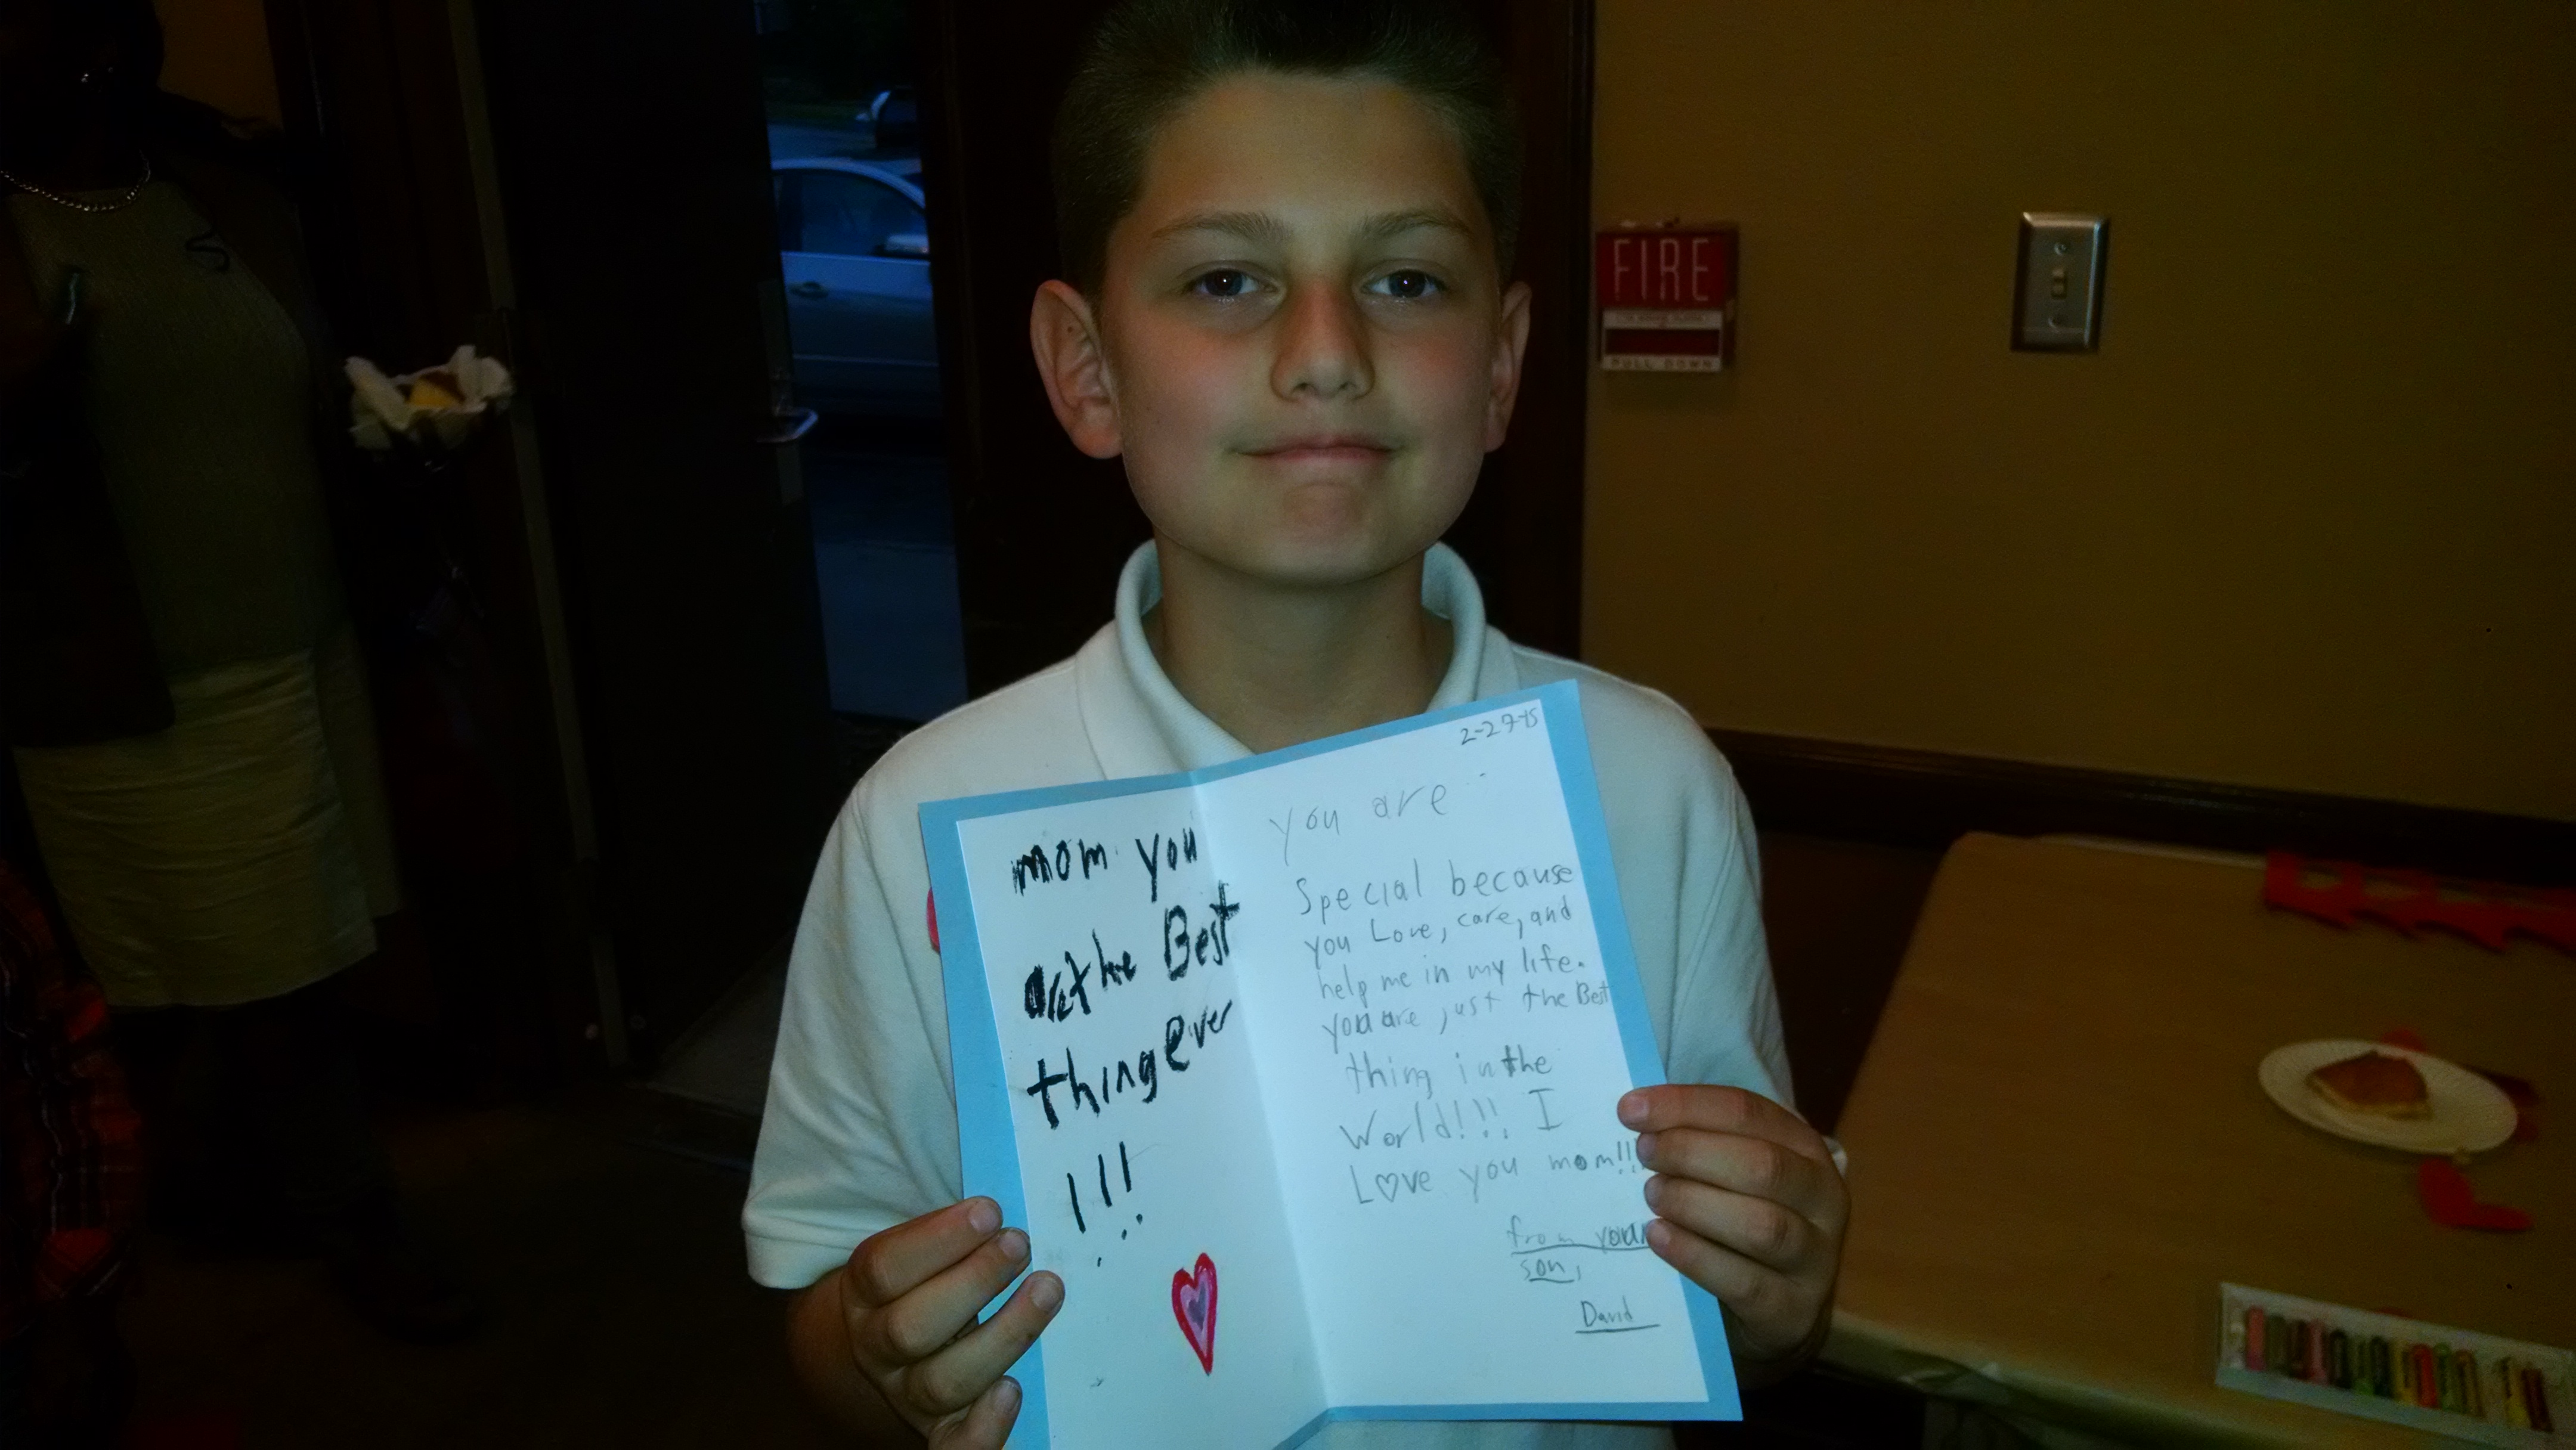 FIRE
PULL DOWN
mom you
are the Best
thing ever
!!!
2-27-15
you are
Special because
you Love, care, and
help me in my life.
you are just the Best
thing in the
World!!! I
Love you mom!!!
from your
son,
David